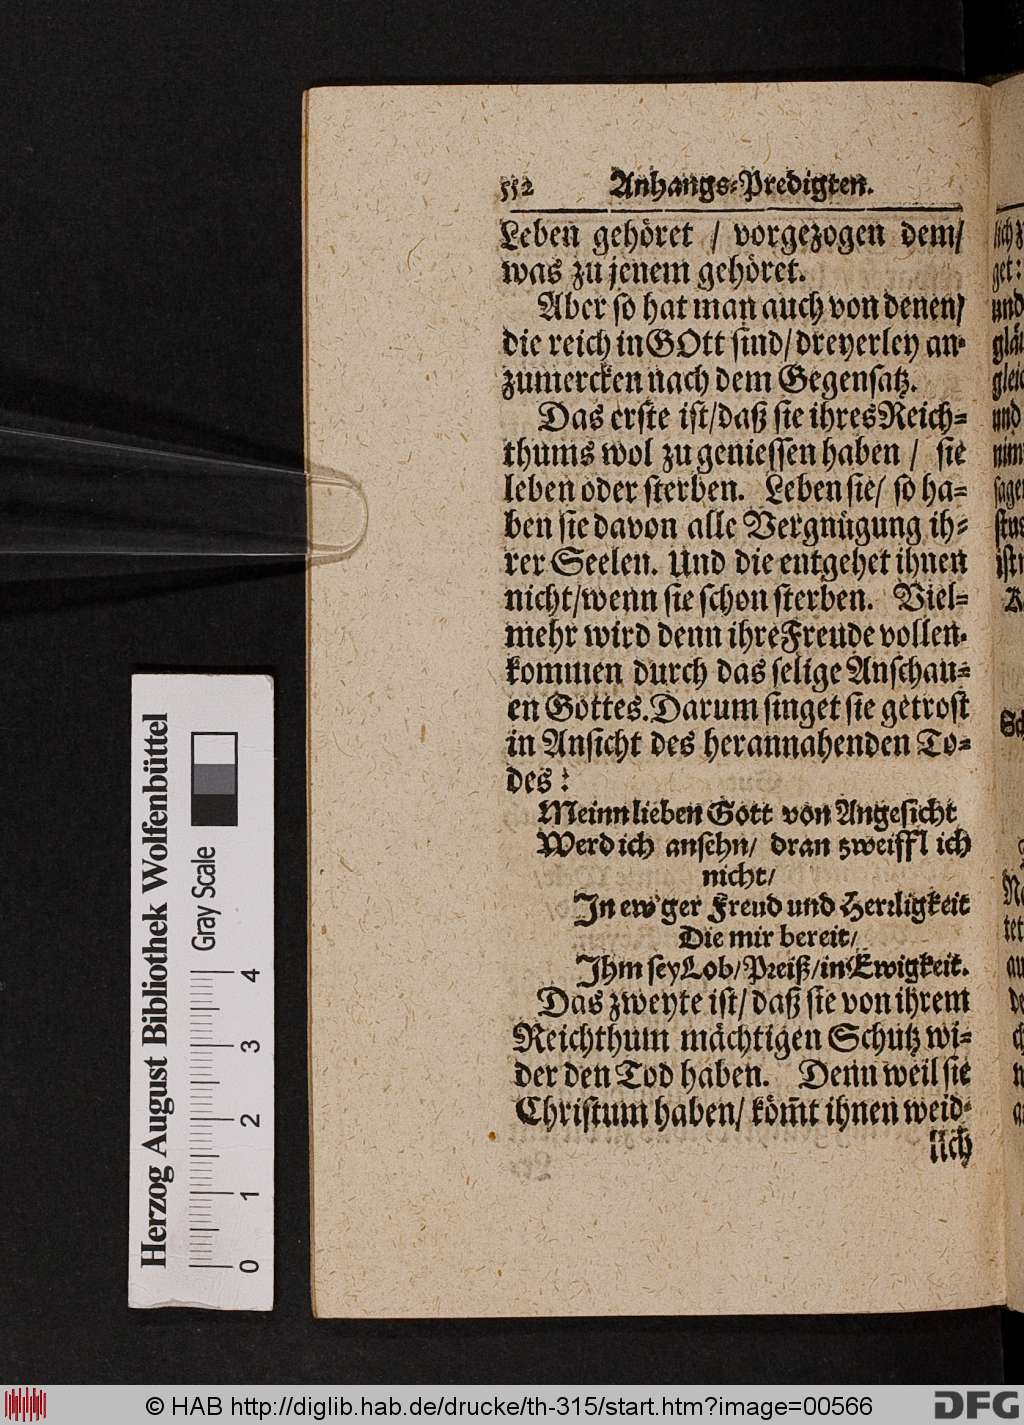 552 Anhangs-Predigten.
Leben gehöret / vorgezogen dem/
was zu jenem gehöret.
Aber so hat man auch von denen/
die reich in GOtt sind/ dreyerley an-
zumercken nach dem Gegensatz.
Das erste ist/ daß sie ihres Reich-
thums wol zu geniessen haben / sie
leben oder sterben. Leben sie/ so ha-
ben sie davon alle Vergnügung ih-
rer Seelen. Und die entgehet ihnen
nicht/ wenn sie schon sterben. Viel-
mehr wird denn ihre Freude vollen-
kommen durch das selige Anschau-
en Gottes. Darum singet sie getrost
in Ansicht des herannahenden To-
des:
Meinn lieben Gott von Angesicht
Werd ich ansehn/ dran zweiffl ich
nicht/
In ew'ger Freud und Herrligkeit
Die mir bereit/
Ihm sey Lob/ Preiß/ in Ewigkeit.
Das zweyte ist/ daß sie von ihrem
Reichthum mächtigen Schutz wi-
der den Tod haben. Denn weil sie
Christum haben/ köm̃t ihnen weid-
lich
Herzog August Bibliothek Wolfenbüttel
Gray Scale
0 1 2 3 4
© HAB http://diglib.hab.de/drucke/th-315/start.htm?image=00566
DFG